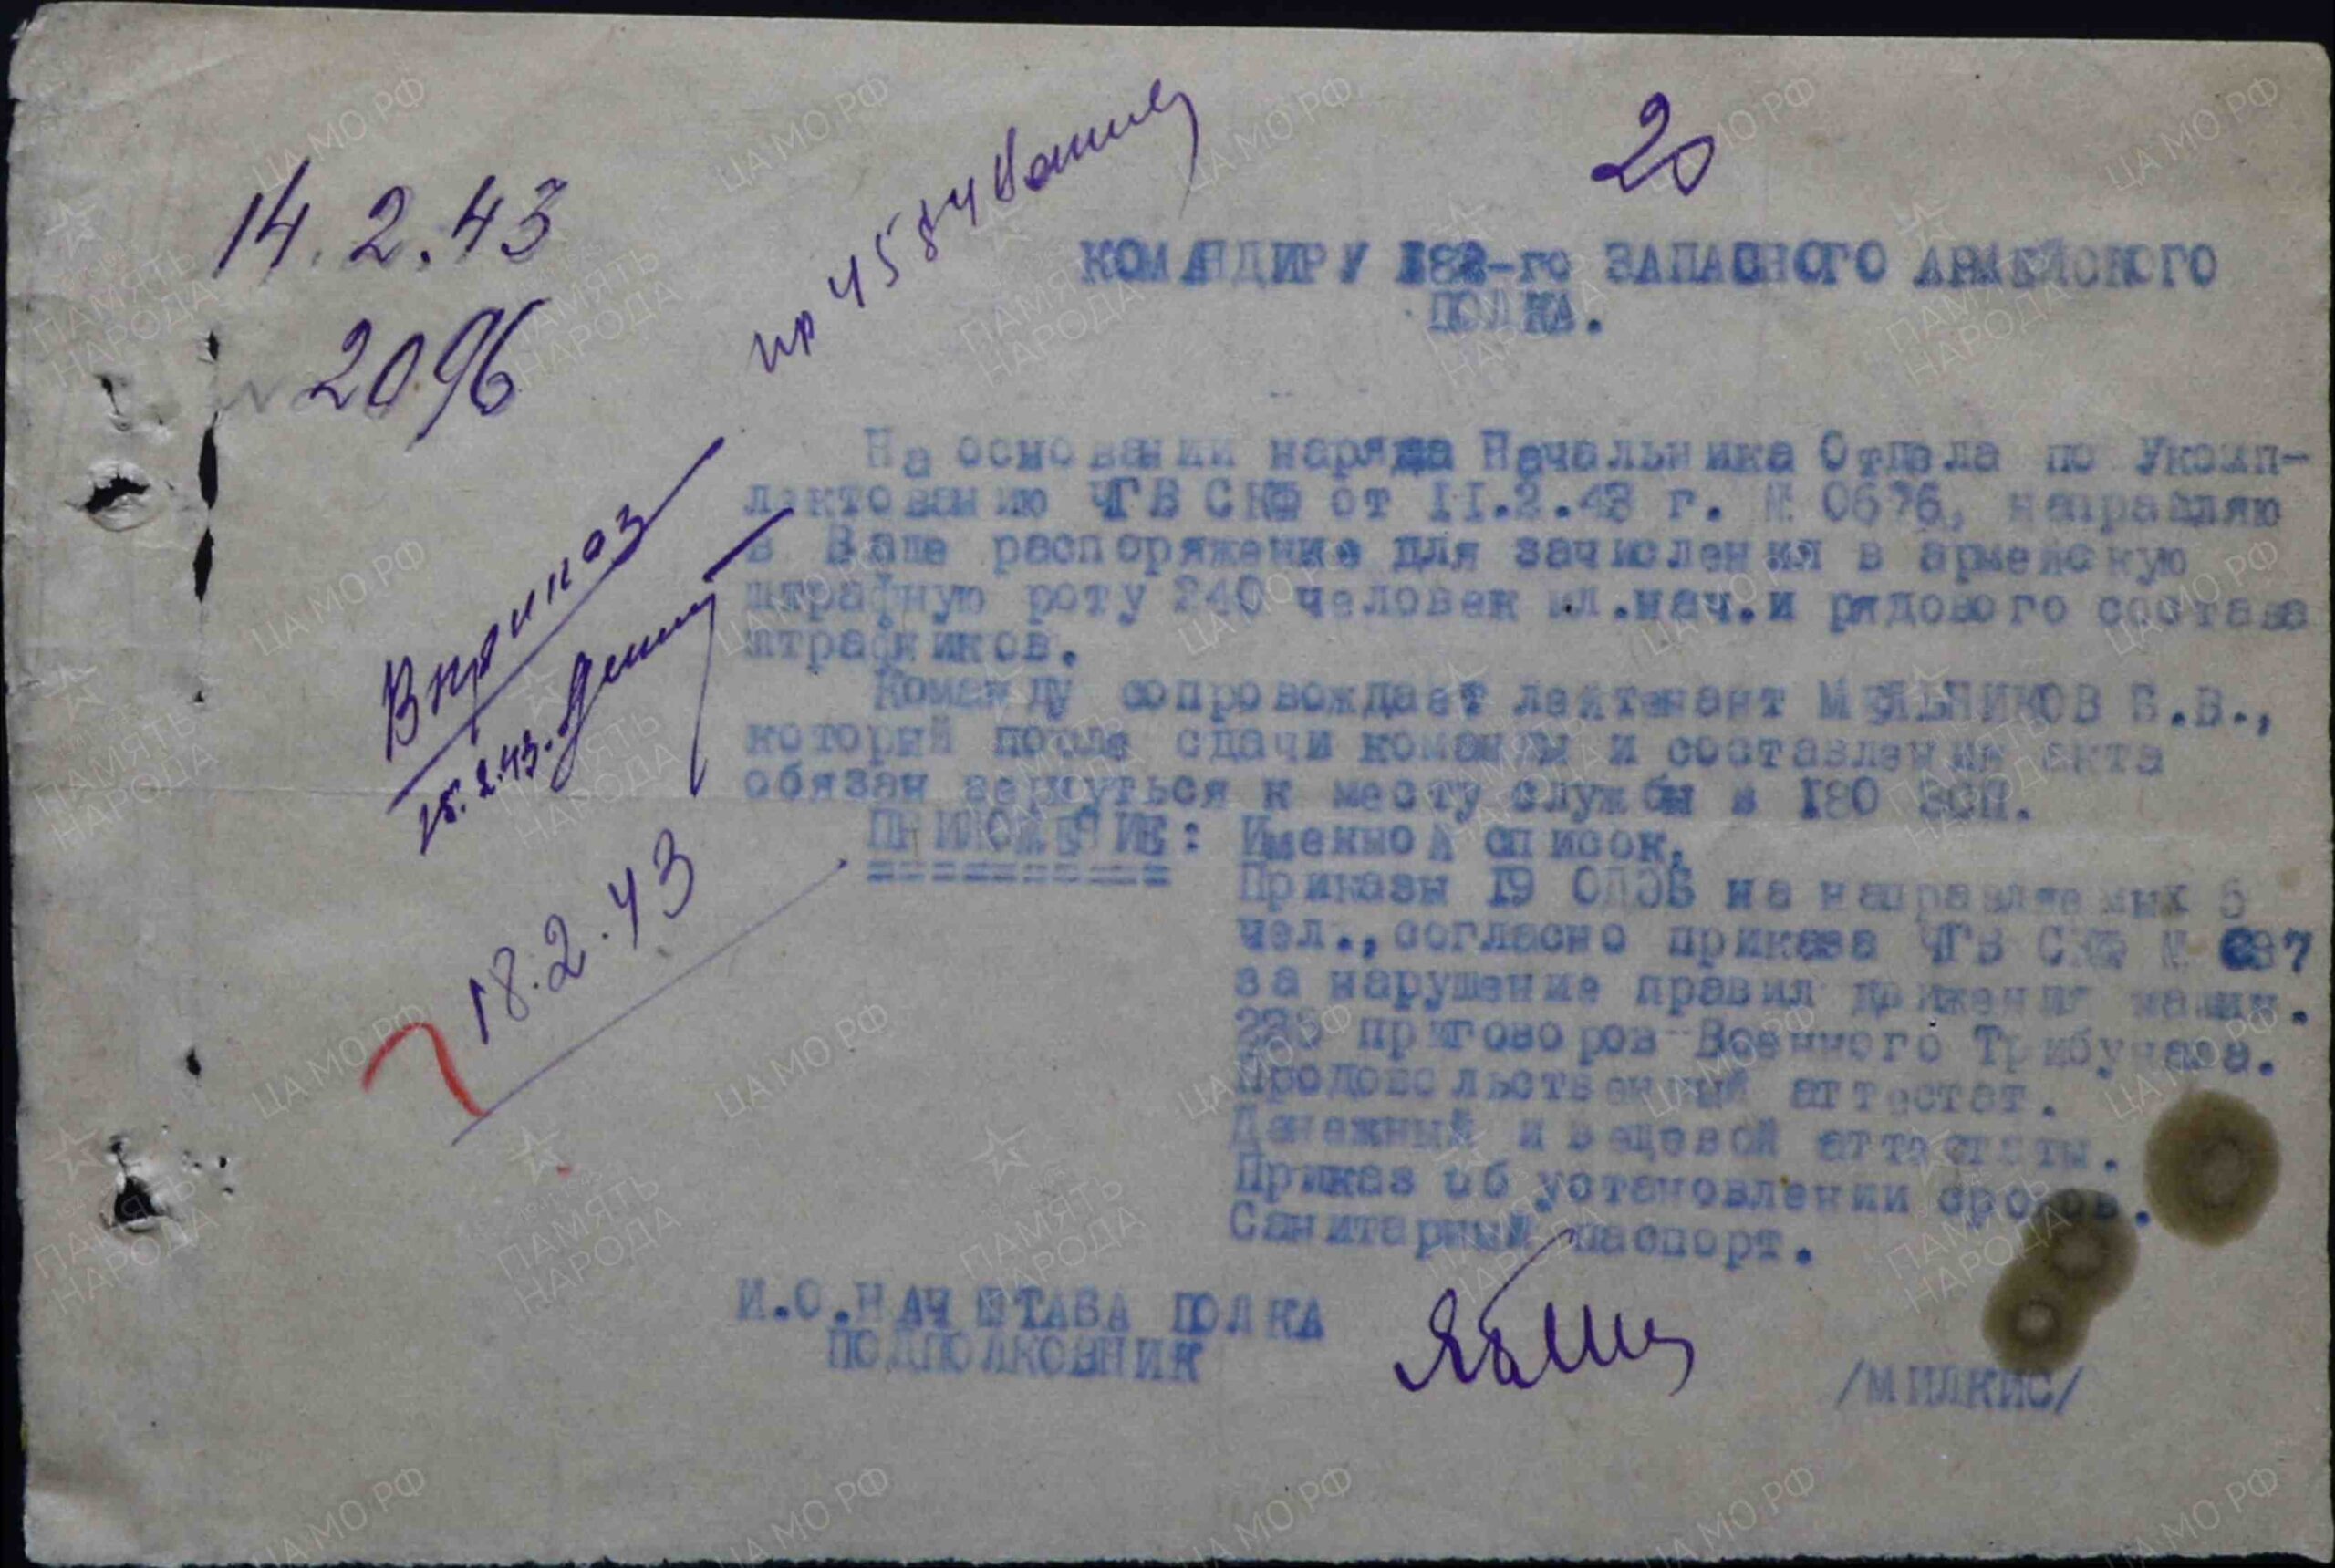 14.2.43
2096
20
КОМАНДИРУ 182-го ЗАПАСНОГО АРМЕЙСКОГО
ПОЛКА.
На основании наряда Начальника Отдела по Укомп-
лектованию ЧГВ СКФ от II.2.43 г. № 0676, направляю
в Ваше распоряжение для зачисления в армейскую
штрафную роту 240 человек мл.нач.и рядового состава
штрафников.
Команду сопровождает лейтенант МЕЛЬНИКОВ В.,
который после сдачи команды и составления акта
обязан вернуться к месту службы в 180 зсп.
ПРИЛОЖЕНИЕ: Именной список,
==========
Приказы 19 на направляемых 5
чел., согласно приказа ЧГВ СКФ №
за нарушение правил движения машин.
приговоров Военного Трибунала.
Продовольственный аттестат.
Денежный и вещевой аттестаты.
Приказ об установлении сроков.
Санитарный паспорт.
В приказ
15.2.43.
18.2.43
И.О.НАЧ ШТАБА ПОЛКА
ПОДПОЛКОВНИК
/МИЛКИС/
ЦА МО РФ
ПАМЯТЬ
НАРОДА